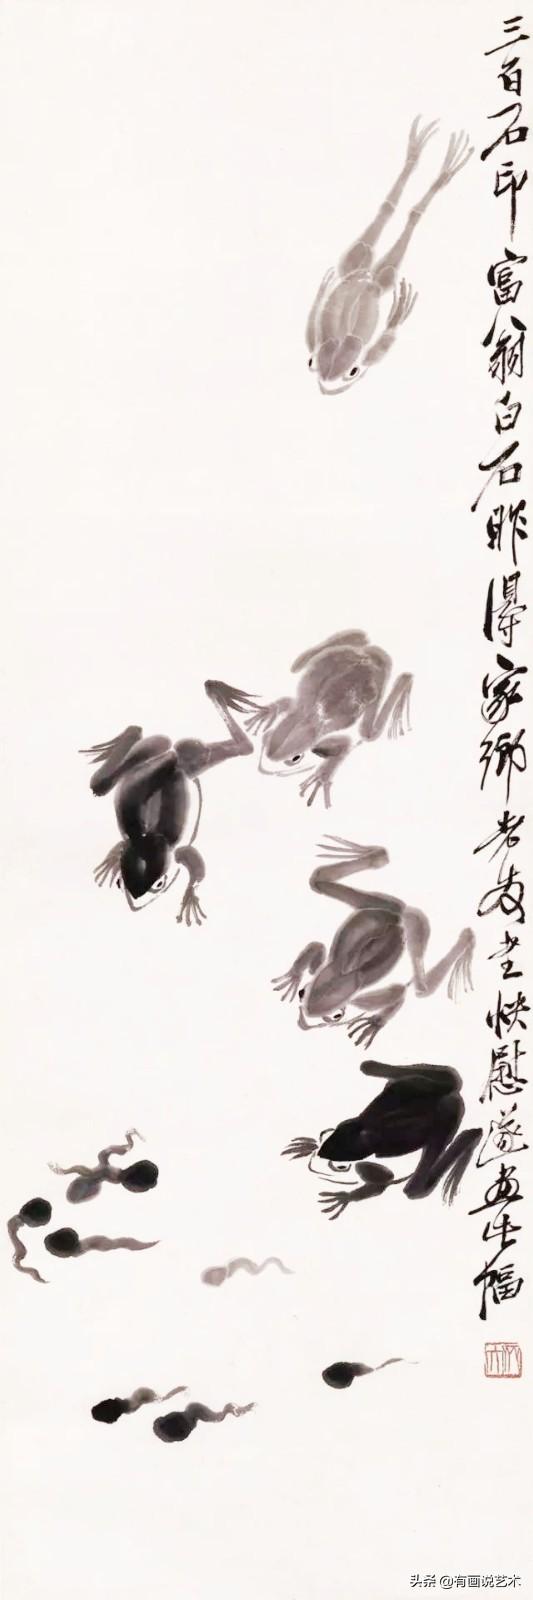 三百石印富翁白石昨得家乡老友书快慰遂画此幅
头条 @有画说艺术